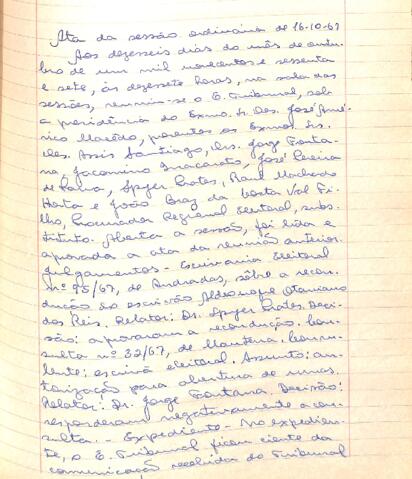 Ata da sessão ordinária de 16-10-67
Aos dezesseis dias do mês de outu-
bro de um mil novecentos e sessenta
e sete, às dezessete horas, na sala das
sessões, reuniu-se o E. Tribunal, sob
a presidência do Exmo. Sr. Des. José Amé-
rico Macêdo, presentes os Exmos. Srs.
Des. Assis Santiago, Drs. Jorge Fonta-
na, Jacomino Inacarato, José Pereira
de Paiva, Spyer Prates, Raul Machado
Horta e João Braz da Costa Val Fi-
lho, Procurador Regional Eleitoral, subs-
tituto. Aberta a sessão, foi lida e
aprovada a ata da reunião anterior.
Julgamentos - Escrivania Eleitoral
nº 95/67, de Andradas, sôbre a recon-
dução do escrivão Otaviano
dos Reis. Relator: Dr. Spyer Prates. Deci-
são: aprovaram a recondução. Con-
sulta nº 32/67, de Mantena. Consu-
lente: escrivã eleitoral. Assunto: au-
torização para abertura de urnas.
Relator: Dr. Jorge Fontana. Decisão:
responderam negativamente a con-
sulta. - Expediente - No expedien-
te, o E. Tribunal ficou ciente da
comunicação recebida do Tribunal